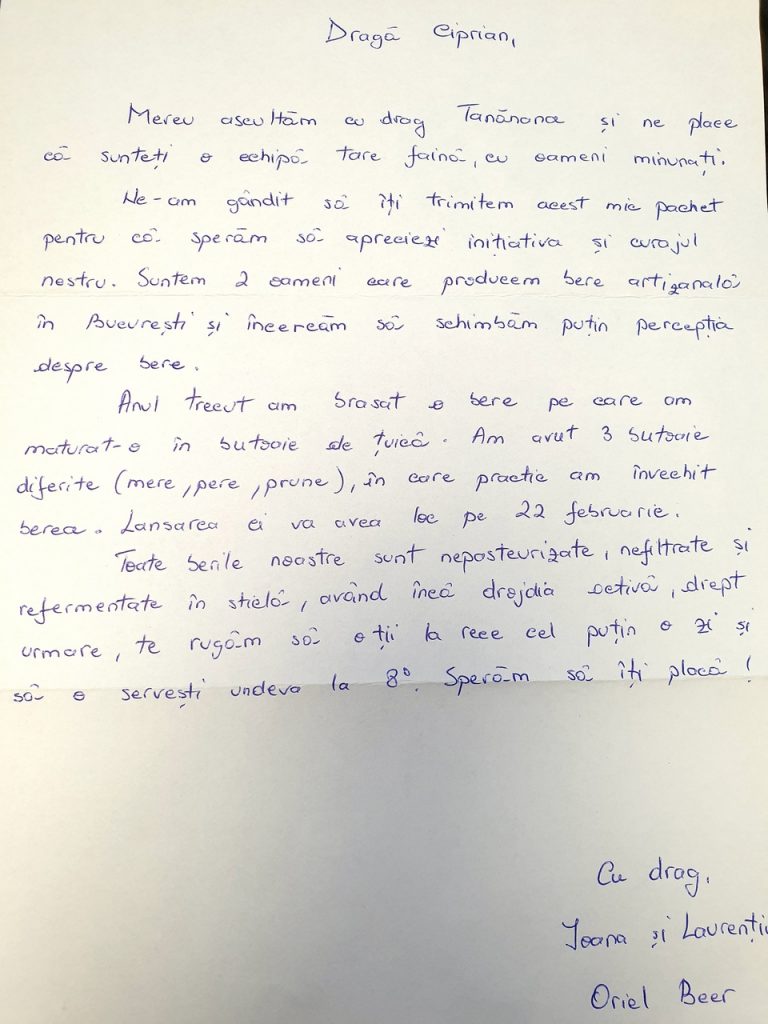 Dragă Ciprian,
Mereu ascultăm cu drag Tanănana și ne place
că sunteți o echipă tare faină, cu oameni minunați.
Ne-am gândit să îți trimitem acest mic pachet
pentru că sperăm să apreciezi inițiativa și curajul
nostru. Suntem 2 oameni care producem bere artizanală
în București și încercăm să schimbăm puțin percepția
despre bere.
Anul trecut am brasat o bere pe care am
maturat-o în butoaie de țuică. Am avut 3 butoaie
diferite (mere, pere, prune), în care practic am învechit
berea. Lansarea ei va avea loc pe 22 februarie.
Toate berile noastre sunt nepasteurizate, nefiltrate și
refermentate în sticlă, având încă drojdia activă, drept
urmare, te rugăm să o ții la rece cel puțin o zi și
să o servești undeva la 8°. Sperăm să îți placă!
Cu drag,
Ioana și Laurenți
Oriel Beer